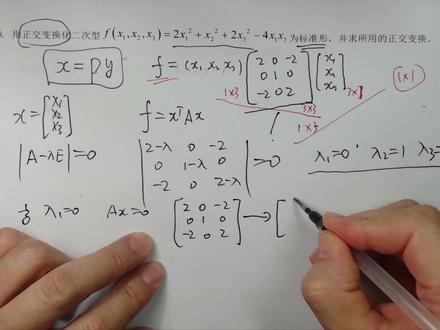 8. 用正交变换化二次型 f(x₁,x₂,x₃)=2x₁²+x₂²+2x₃²-4x₁x₃为标准形，并求所用的正交变换。
x=Py f=(x₁ x₂ x₃) [2 0 -2; 0 1 0; -2 0 2] [x₁; x₂; x₃]
1×3 3×3 3×1 1×1
1×3
x=[x₁; x₂; x₃] f=xᵀAx
|A-λE|=0 |2-λ 0 -2; 0 1-λ 0; -2 0 2-λ|=0 λ₁=0 λ₂=1 λ₃=
当 λ₁=0 Ax=0 [2 0 -2; 0 1 0; -2 0 2] → [